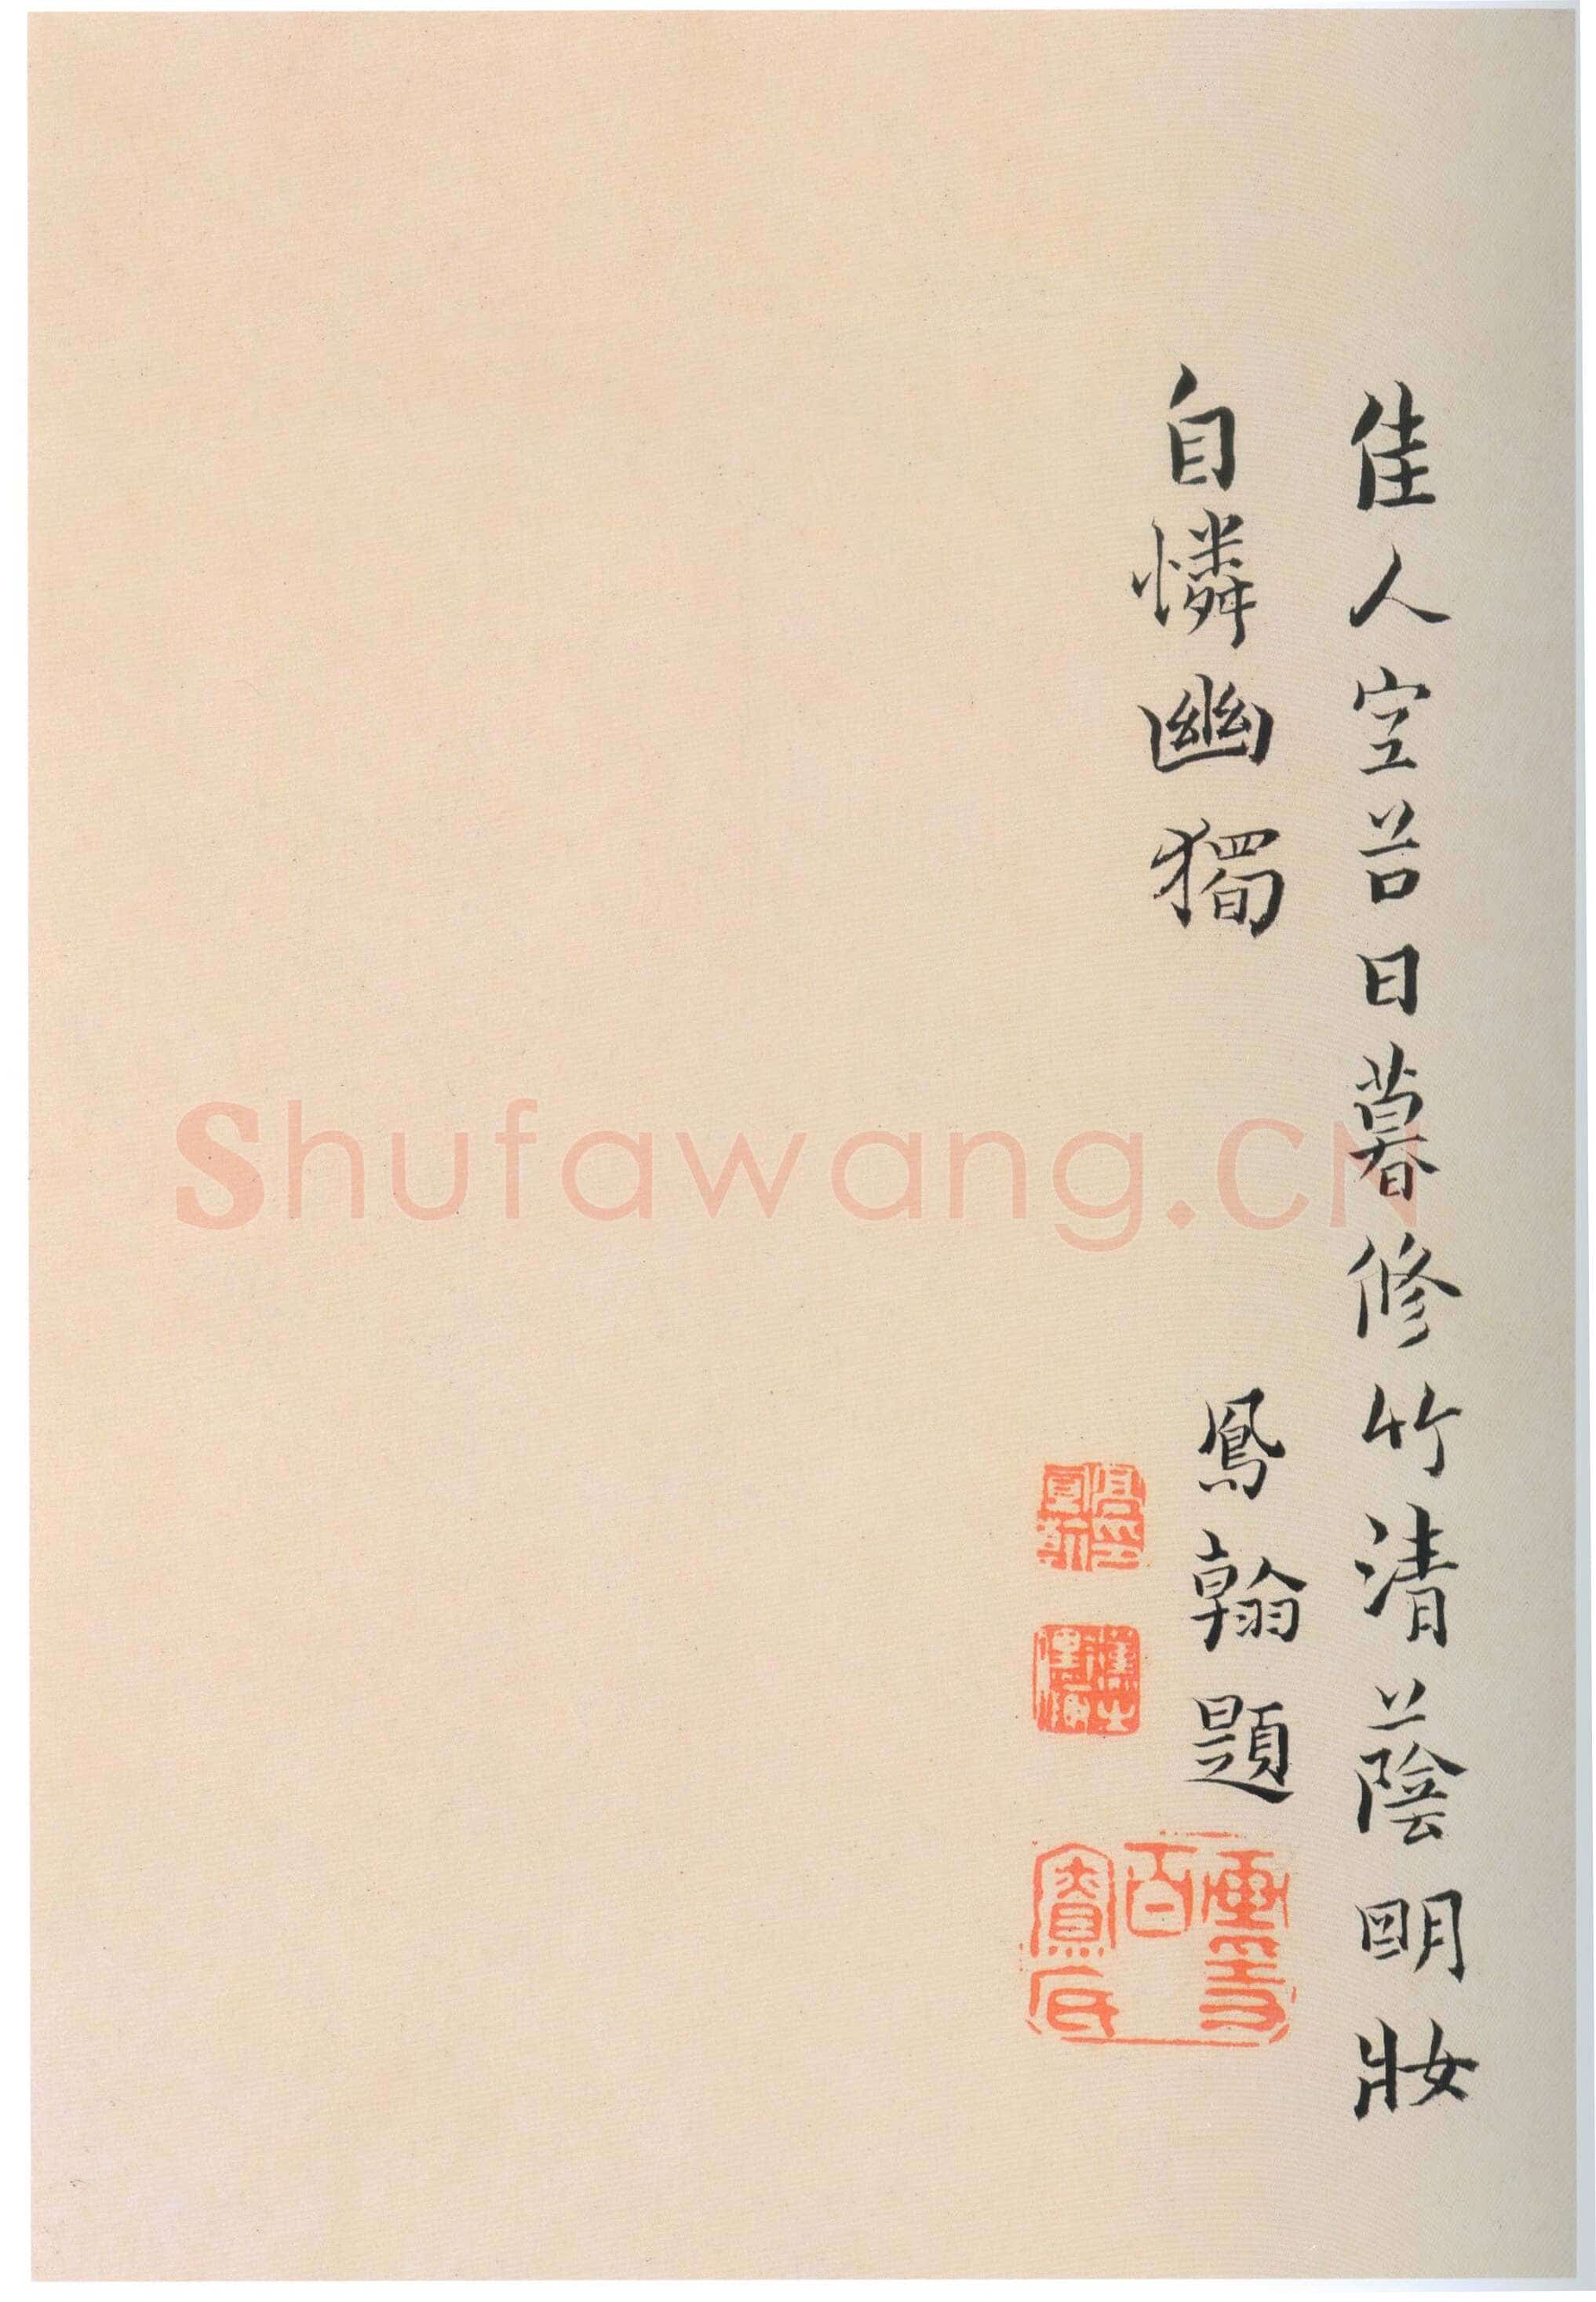 佳人空苔日暮修竹清蔭明妝
自憐幽獨
鳳翰題
Shufawang.CN